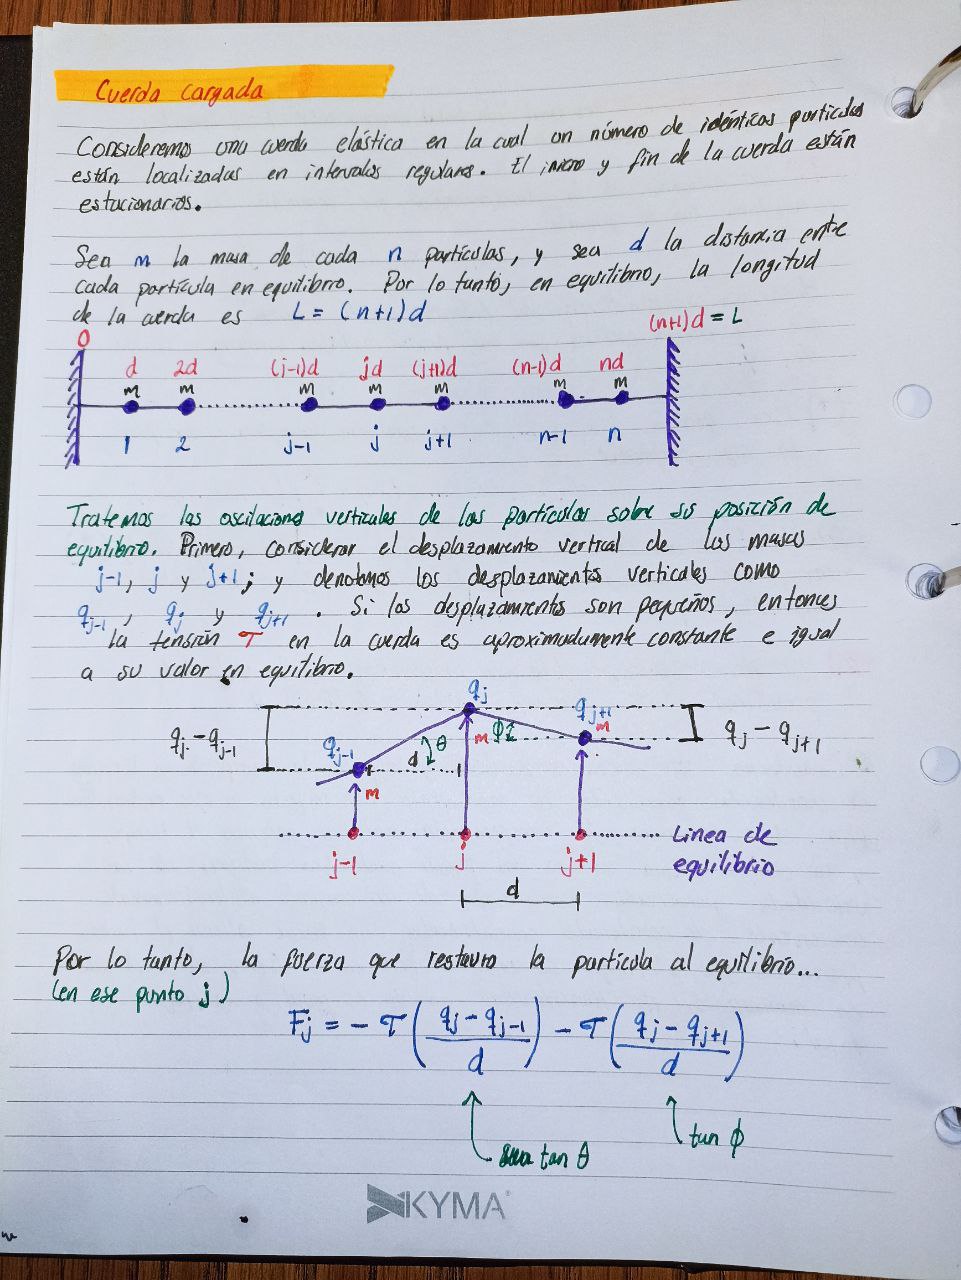 Cuerda cargada
Consideremo una cuerda elástica en la cual un número de idénticas partículas
están localizadas en intervalos regulares. El inicio y fin de la cuerda están
estacionarios.
Sea m la masa de cada n partículas, y sea d la distancia entre
cada partícula en equilibrio. Por lo tanto, en equilibrio, la longitud
de la cuerda es L = (n+1)d
0 (n+1)d = L
d 2d (j-1)d jd (j+1)d (n-1)d nd
m m m m m m m
1 2 j-1 j j+1 n-1 n
Tratemos las oscilaciones verticales de las partículas sobre su posición de
equilibrio. Primero, considerar el desplazamiento vertical de las masas
j-1, j y j+1; y denotamos los desplazamientos verticales como
q_{j-1}, q_j y q_{j+1}. Si los desplazamientos son pequeños, entonces
la tensión τ en la cuerda es aproximadamente constante e igual
a su valor en equilibrio.
q_j
q_{j+1}
q_j - q_{j-1} q_{j-1} d θ m ϕ m q_j - q_{j+1}
m
Linea de
equilibrio
j-1 j j+1
d
Por lo tanto, la fuerza que restaura la partícula al equilibrio...
(en ese punto j)
F_j = - τ ( (q_j - q_{j-1}) / d ) - τ ( (q_j - q_{j+1}) / d )
tan θ tan ϕ
KYMA